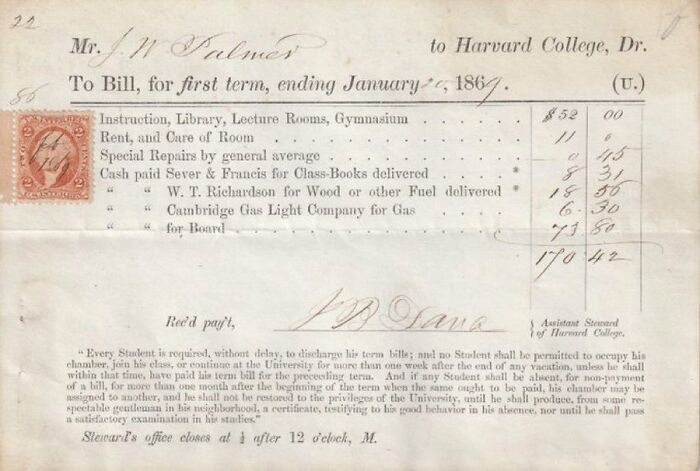 22
Mr. J W Palmer to Harvard College, Dr.
To Bill, for first term, ending January 20, 1869. (U.)
86
Instruction, Library, Lecture Rooms, Gymnasium . . . . . . $52 00
Rent, and Care of Room . . . . . . . . . . . . . 11 0
Special Repairs by general average . . . . . . . . . . 0 45
Cash paid Sever & Francis for Class-Books delivered . . . . . * 8 31
" " W. T. Richardson for Wood or other Fuel delivered * 18 56
" " Cambridge Gas Light Company for Gas . . . . 6. 30
" " for Board . . . . . . . . . . . . . . 73 80
170 42
2 2
Rec'd pay't, J B Dana } Assistant Steward
of Harvard College.
"Every Student is required, without delay, to discharge his term bills; and no Student shall be permitted to occupy his
chamber, join his class, or continue at the University for more than one week after the end of any vacation, unless he shall
within that time, have paid his term bill for the preceeding term. And if any Student shall be absent, for non-payment
of a bill, for more than one month after the beginning of the term when the same ought to be paid, his chamber may be
assigned to another, and he shall not be restored to the privileges of the University, until he shall produce, from some re-
spectable gentleman in his neighborhood, a certificate, testifying to his good behavior in his absence, nor until he shall pass
a satisfactory examination in his studies."
Steward's office closes at ½ after 12 o'clock, M.